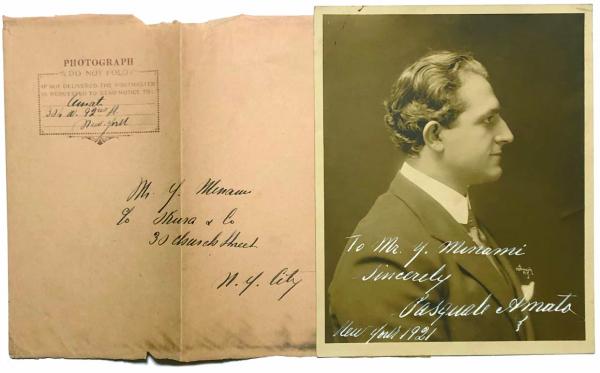 PHOTOGRAPH
DO NOT FOLD
IF NOT DELIVERED THE POSTMASTER
IS REQUESTED TO SEND NOTICE TO:
Amato
N. 92nd St.
New York
Mr. Y. Minami
c/o & Co
30 Church Street
N. Y. City
To Mr. Y. Minami
Sincerely
Pasquale Amato
New York 1921